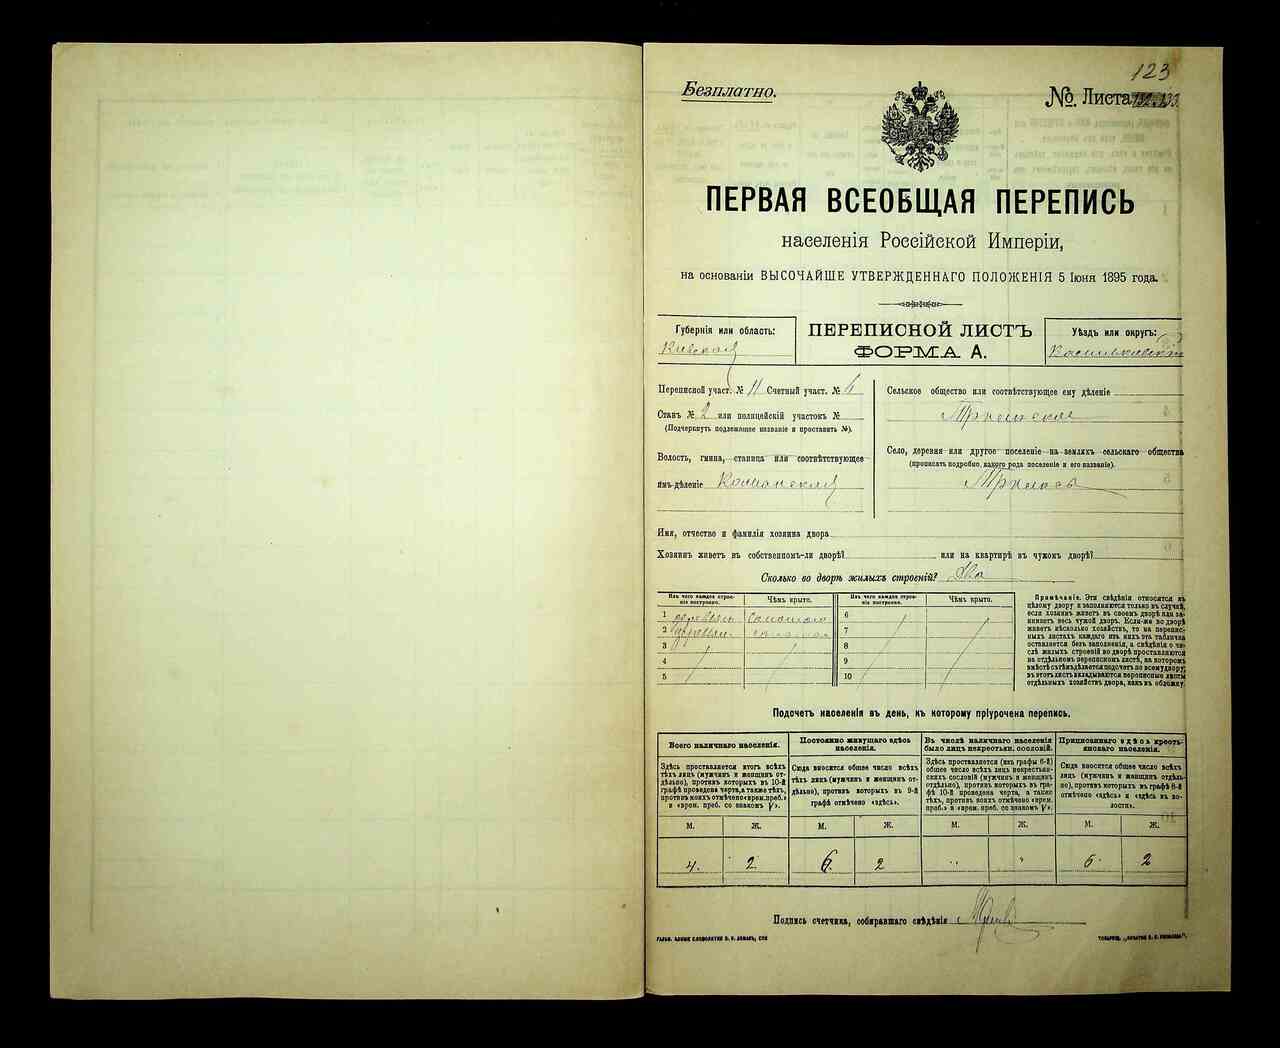 123
Безплатно.
№ Листа
ПЕРВАЯ ВСЕОБЩАЯ ПЕРЕПИСЬ
населенія Россійской Имперіи,
на основаніи ВЫСОЧАЙШЕ УТВЕРЖДЕННАГО ПОЛОЖЕНІЯ 5 Іюня 1895 года.
Губернія или область:
Киевская
ПЕРЕПИСНОЙ ЛИСТЪ
ФОРМА А.
Уѣздъ или округъ:
Васильковский
Переписной участ. № 11 Счетный участ. № 6
Станъ № 2 или полицейскій участокъ №
(Подчеркнуть подлежащее названіе и проставить №).
Волость, гмина, станица или соотвѣтствующее
имъ дѣленіе
Сельское общество или соотвѣтствующее ему дѣленіе
Село, деревня или другое поселеніе на земляхъ сельскаго общества
(прописать подробно, какого рода поселеніе и его названіе).
Трилесы
Имя, отчество и фамилія хозяина двора
Хозяинъ живетъ въ собственномъ-ли дворѣ? или на квартирѣ въ чужом дворѣ?
Сколько во дворѣ жилыхъ строеній? Два
Изъ чего каждое строеніе построено.
Чѣмъ крыто.
Изъ чего каждое строеніе построено.
Чѣмъ крыто.
1 деревян. соломою
2 деревян. соломою
3
4
5
6
7
8
9
10
Примѣчаніе. Эти свѣдѣнія относятся къ
цѣлому двору и заполняются только въ случаѣ,
если хозяинъ живетъ въ своемъ дворѣ или за-
нимаетъ весь чужой дворъ. Если-же во дворѣ
живетъ нѣсколько хозяйствъ, то на перепис-
ныхъ листахъ каждаго изъ нихъ эта табличка
оставляется безъ заполненія, а свѣдѣнія о чи-
слѣ жилыхъ строеній во дворѣ проставляются
на отдѣльномъ переписномъ листѣ, на которомъ
вмѣстѣ съ тѣмъ дѣлается подсчетъ по всему двору;
въ этотъ листъ вкладываются переписные листы
отдѣльныхъ хозяйствъ двора, какъ въ обложку.
Подсчетъ населенія въ день, къ которому пріурочена перепись.
Всего наличнаго населенія.
Здѣсь проставляется итогъ всѣхъ
тѣхъ лицъ (мужчинъ и женщинъ от-
дѣльно), противъ которыхъ въ 10-й
графѣ проведена черта, а также тѣхъ,
противъ коихъ отмѣчено «врем. преб.»
и «врем. преб. со знакомъ V».
Постоянно живущаго здѣсь
населенія.
Сюда вносится общее число всѣхъ
тѣхъ лицъ (мужчинъ и женщинъ от-
дѣльно), противъ которыхъ въ 9-й
графѣ отмѣчено «здѣсь».
Въ числѣ наличнаго населенія
было лицъ некрестьян. сословій.
Здѣсь проставляется (изъ графы 6-й)
общее число всѣхъ лицъ некрестьян-
скихъ сословій (мужчинъ и женщинъ
отдѣльно), противъ которыхъ въ гра-
фѣ 10-й проведена черта, а также
тѣхъ, противъ коихъ отмѣчено «врем.
преб.» и «врем. преб. со знакомъ V».
Приписаннаго здѣсь кресть-
янскаго населенія.
Сюда вносится общее число всѣхъ
лицъ (мужчинъ и женщинъ отдѣль-
но), противъ которыхъ въ графѣ 8-й
отмѣчено «здѣсь» и «здѣсь въ во-
лости».
М. Ж. М. Ж. М. Ж. М. Ж.
4. 2 6. 2 " " 6. 2
Подпись счетчика, собиравшаго свѣдѣнія